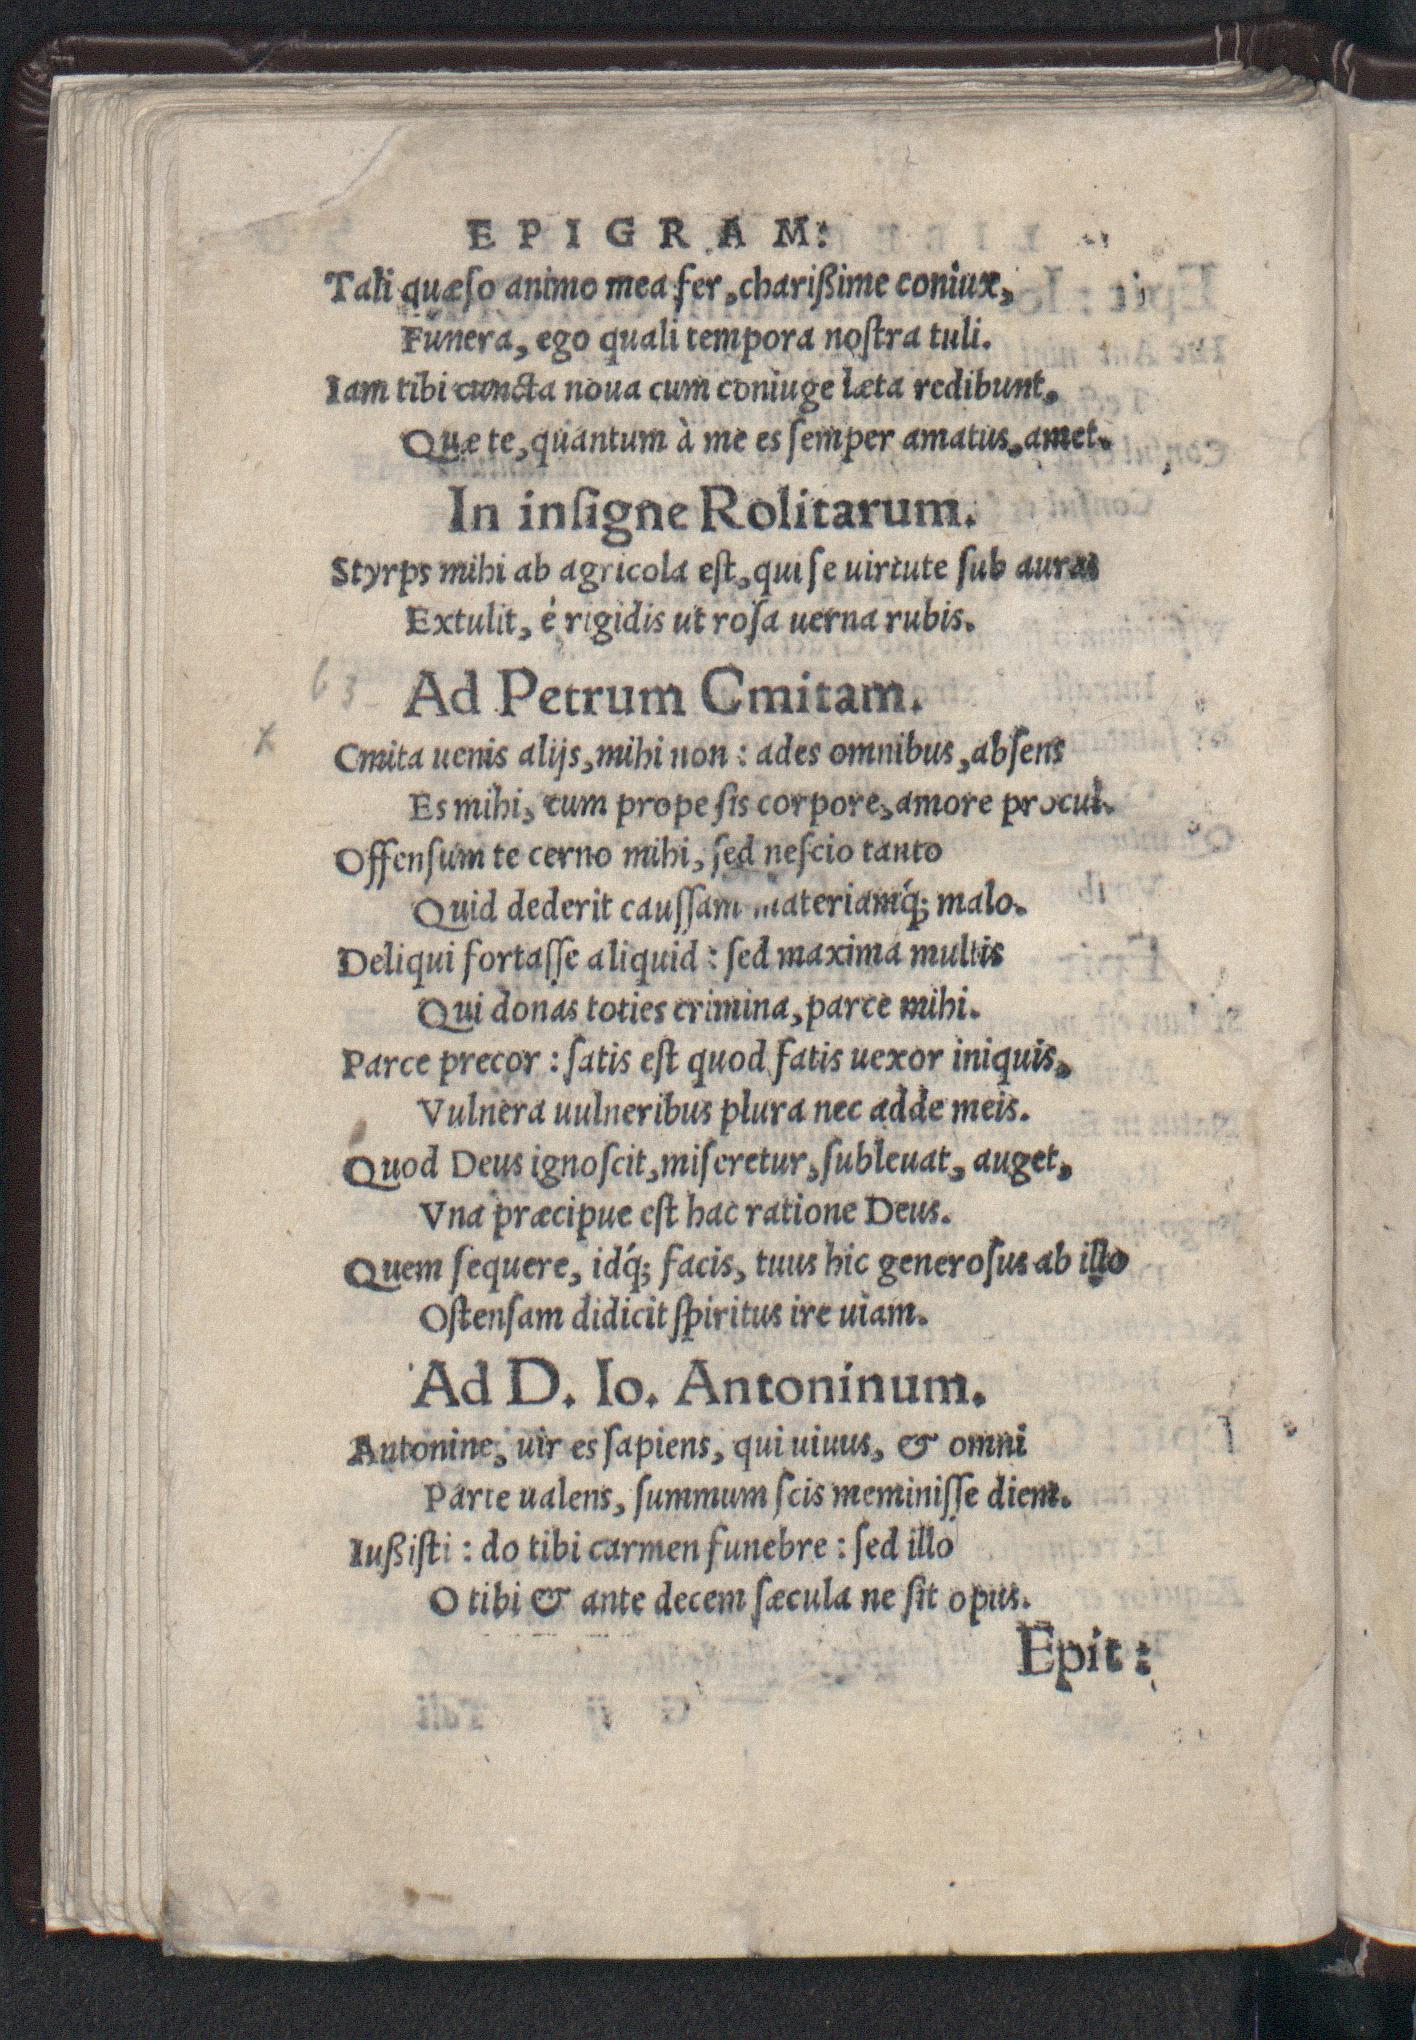 EPIGRAM:
Tali quæſo animo mea fer, charißime coniux,
Funera, ego quali tempora noſtra tuli.
Iam tibi cuncta noua cum coniuge læta redibunt,
Quæ te, quantum à me es ſemper amatus, amet.
In inſigne Rolitarum.
Styrps mihi ab agricola eſt, qui ſe uirtute ſub auras
Extulit, é rigidis ut roſa uerna rubis.
63
Ad Petrum Cmitam.
x
Cmita uenis alijs, mihi non : ades omnibus, abſens
Es mihi, cum prope ſis corpore, amore procul.
Offenſum te cerno mihi, ſed neſcio tanto
Quid dederit cauſſam materiamq́; malo.
Deliqui fortaſſe aliquid : ſed maxima multis
Qui donas toties crimina, parce mihi.
Parce precor : ſatis eſt quod fatis uexor iniquis,
Vulnera uulneribus plura nec adde meis.
Quod Deus ignoſcit, miſeretur, ſubleuat, auget,
Vna præcipue eſt hac ratione Deus.
Quem ſequere, idq́; facis, tuus hic generoſus ab iſto
Oſtenſam didicit ſpiritus ire uiam.
Ad D. Io. Antoninum.
Antonine, uir es ſapiens, qui uiuus, & omni
Parte ualens, ſummum ſcis meminiſſe diem.
Iußiſti : do tibi carmen funebre : ſed illo
O tibi & ante decem ſæcula ne ſit opus.
Epit :